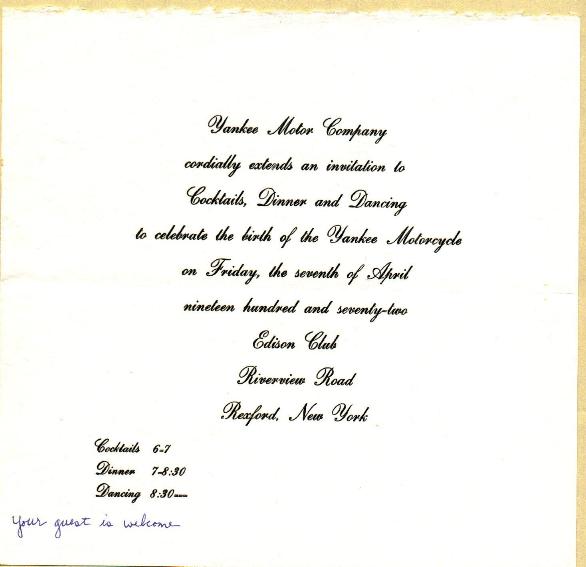 Yankee Motor Company
cordially extends an invitation to
Cocktails, Dinner and Dancing
to celebrate the birth of the Yankee Motorcycle
on Friday, the seventh of April
nineteen hundred and seventy-two
Edison Club
Riverview Road
Rexford, New York
Cocktails 6-7
Dinner 7-8:30
Dancing 8:30—
Your guest is welcome